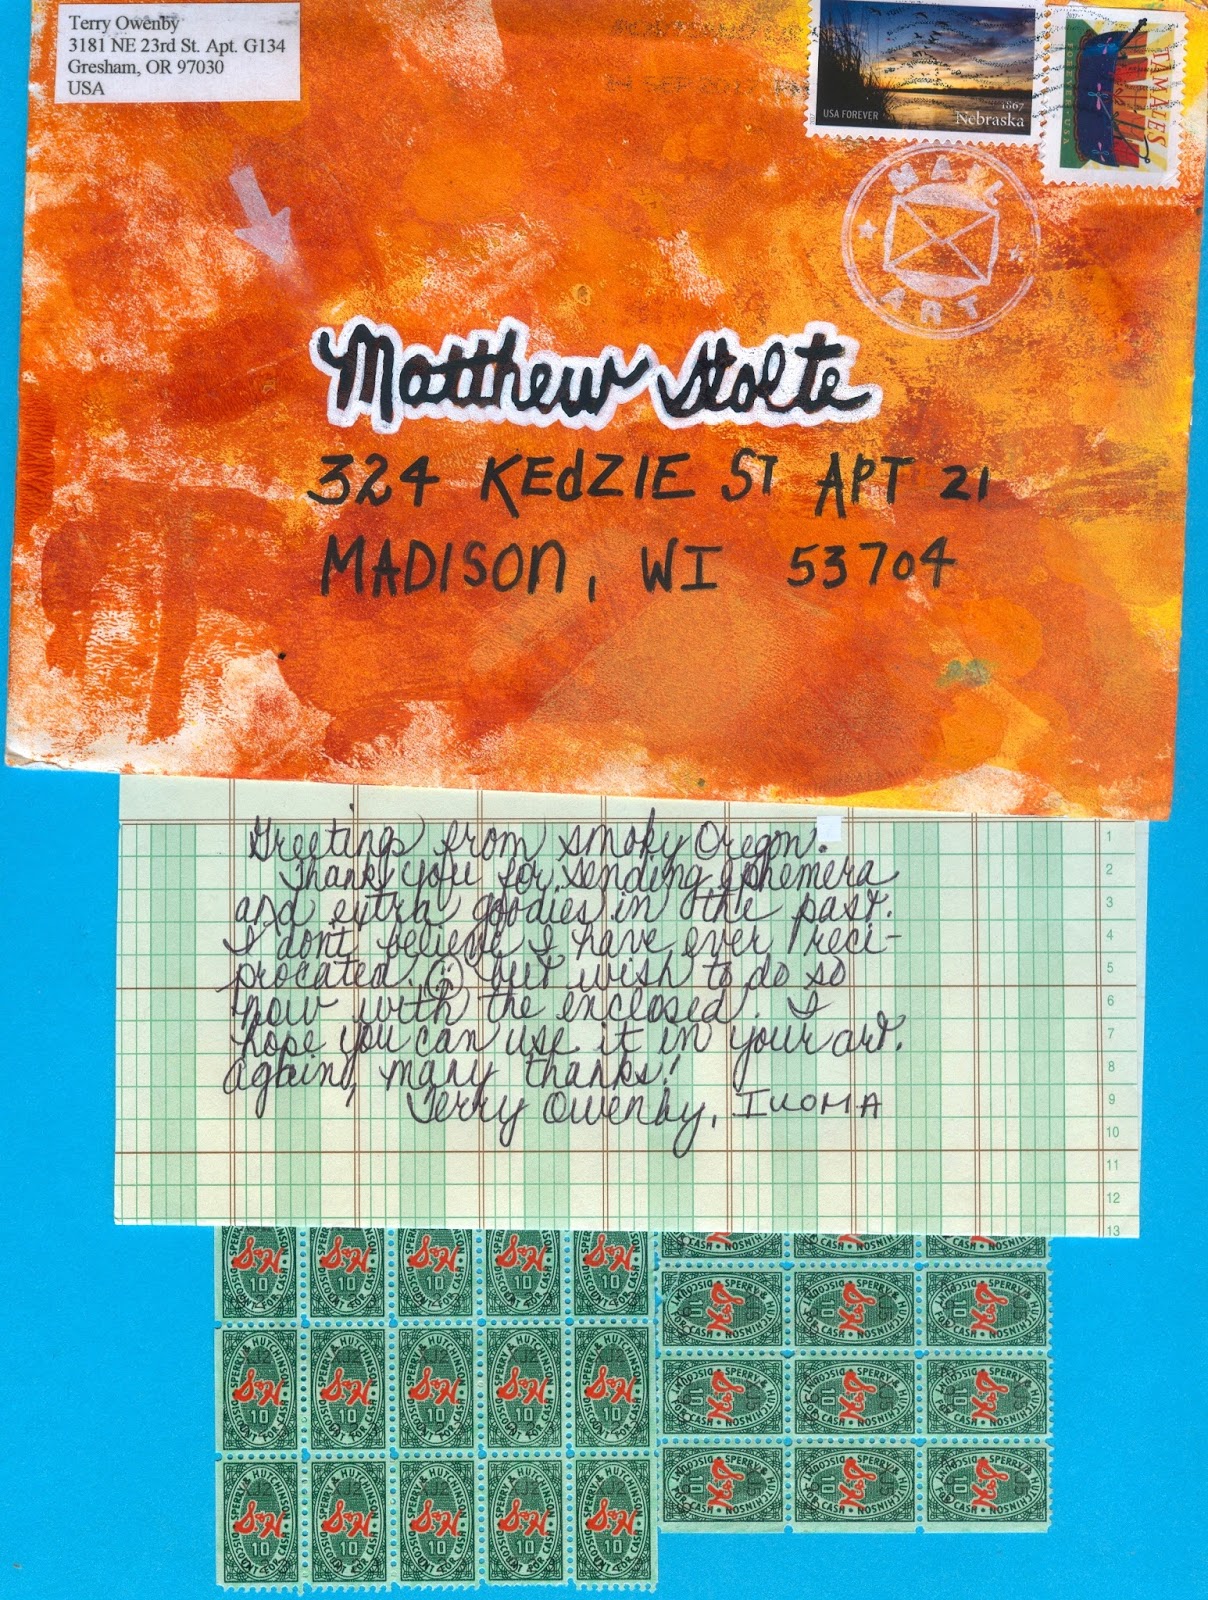 Terry Owenby
3181 NE 23rd St. Apt. G134
Gresham, OR 97030
USA
14 SEP 2017
USA FOREVER
1867
Nebraska
TAMALES
FOREVER • USA
MAIL
ART
Matthew Stolte
324 KEdZIE ST APT 21
MADISON, WI 53704
Greetings from smoky Oregon.
Thank you for sending ephemera
and extra goodies in the past.
I don't believe I have ever reci-
procated but wish to do so
now with the enclosed. I
hope you can use it in your art.
Again, many thanks!
Terry Owenby, IUOMA
1
2
3
4
5
6
7
8
9
10
11
12
13
SPERRY & HUTCHINSON CO
S&H
10
DISCOUNT FOR CASH
XJ2